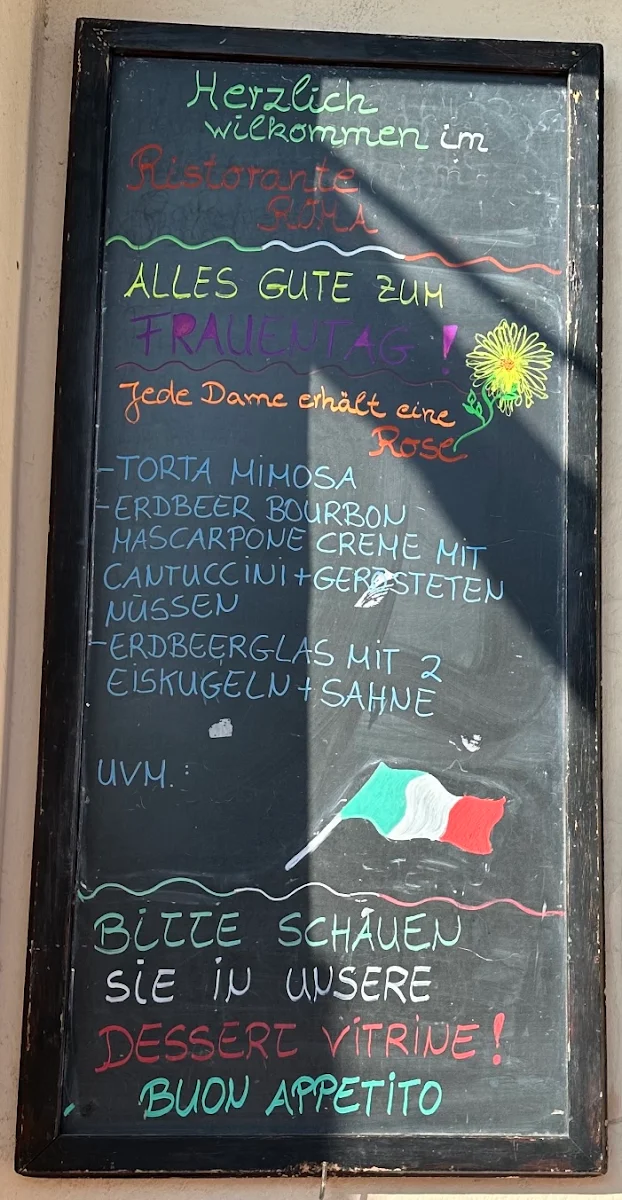 Herzlich
wilkommen im
Ristorante
ROMA
ALLES GUTE ZUM
FRAUENTAG !
Jede Dame erhält eine
Rose
- TORTA MIMOSA
- ERDBEER BOURBON -
MASCARPONE CREME MIT
CANTUCCINI + GERÖSTETEN
NÜSSEN
- ERDBEERGLAS MIT 2
EISKUGELN + SAHNE
UVM.:
BITTE SCHAUEN
SIE IN UNSERE
DESSERT VITRINE!
BUON APPETITO